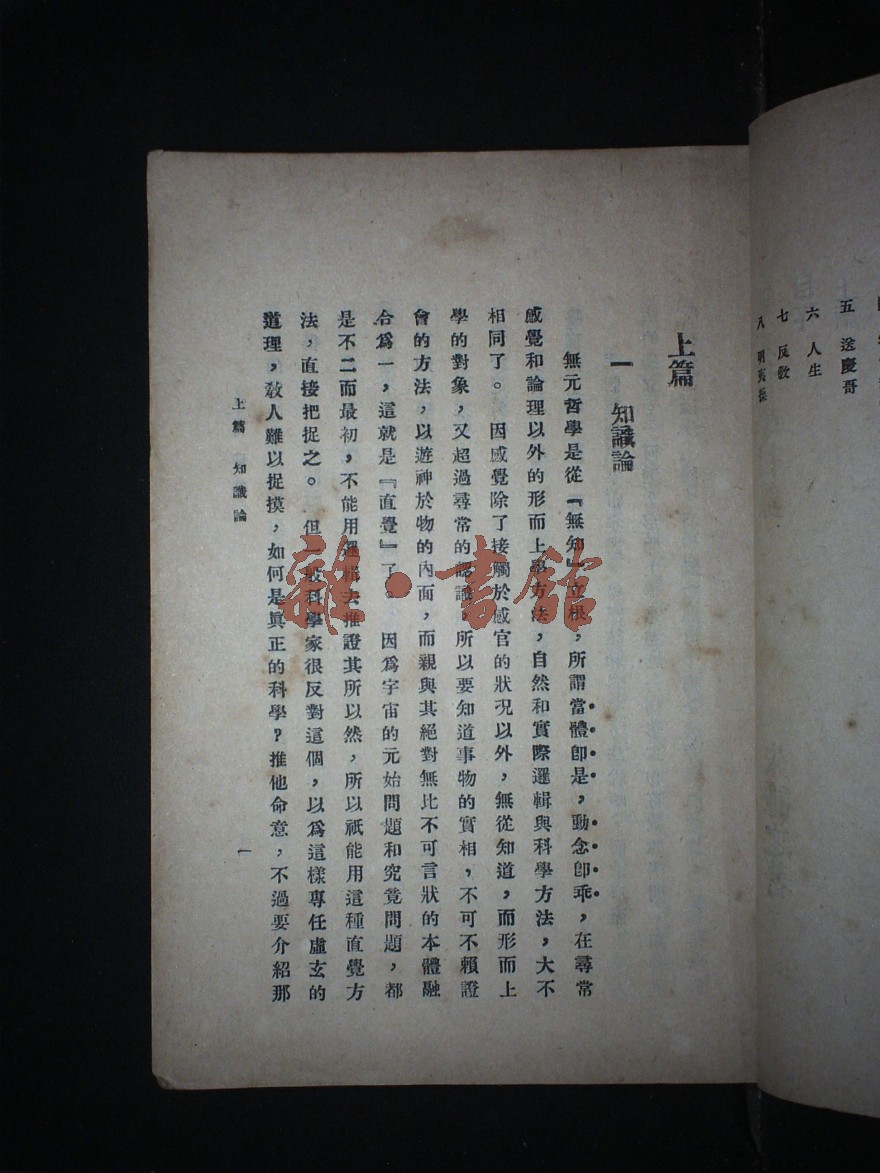 五 送慶哥
六 人生
七 反教
上篇
一 知識論
無元哲學是從『無知』立根，所謂當體卽是，動念卽乖，在尋常
感覺和論理以外的形而上學方法，自然和實際邏輯與科學方法，大不
相同了。因感覺除了接觸於感官的狀况以外，無從知道，而形而上
學的對象，又超過尋常的認識，所以要知道事物的實相，不可不賴證
會的方法，以遊神於物的內面，而親與其絕對無比不可言狀的本體融
合爲一，這就是『直覺』了。因爲宇宙的元始問題和究竟問題，都
是不二而最初，不能用邏輯去推證其所以然，所以祇能用這種直覺方
法，直接把捉之。但一般科學家很反對這個，以爲這樣專任虛玄的
道理，敎人難以捉摸，如何是眞正的科學？推他命意，不過要介紹那
上篇 知識論
一
雜·書館